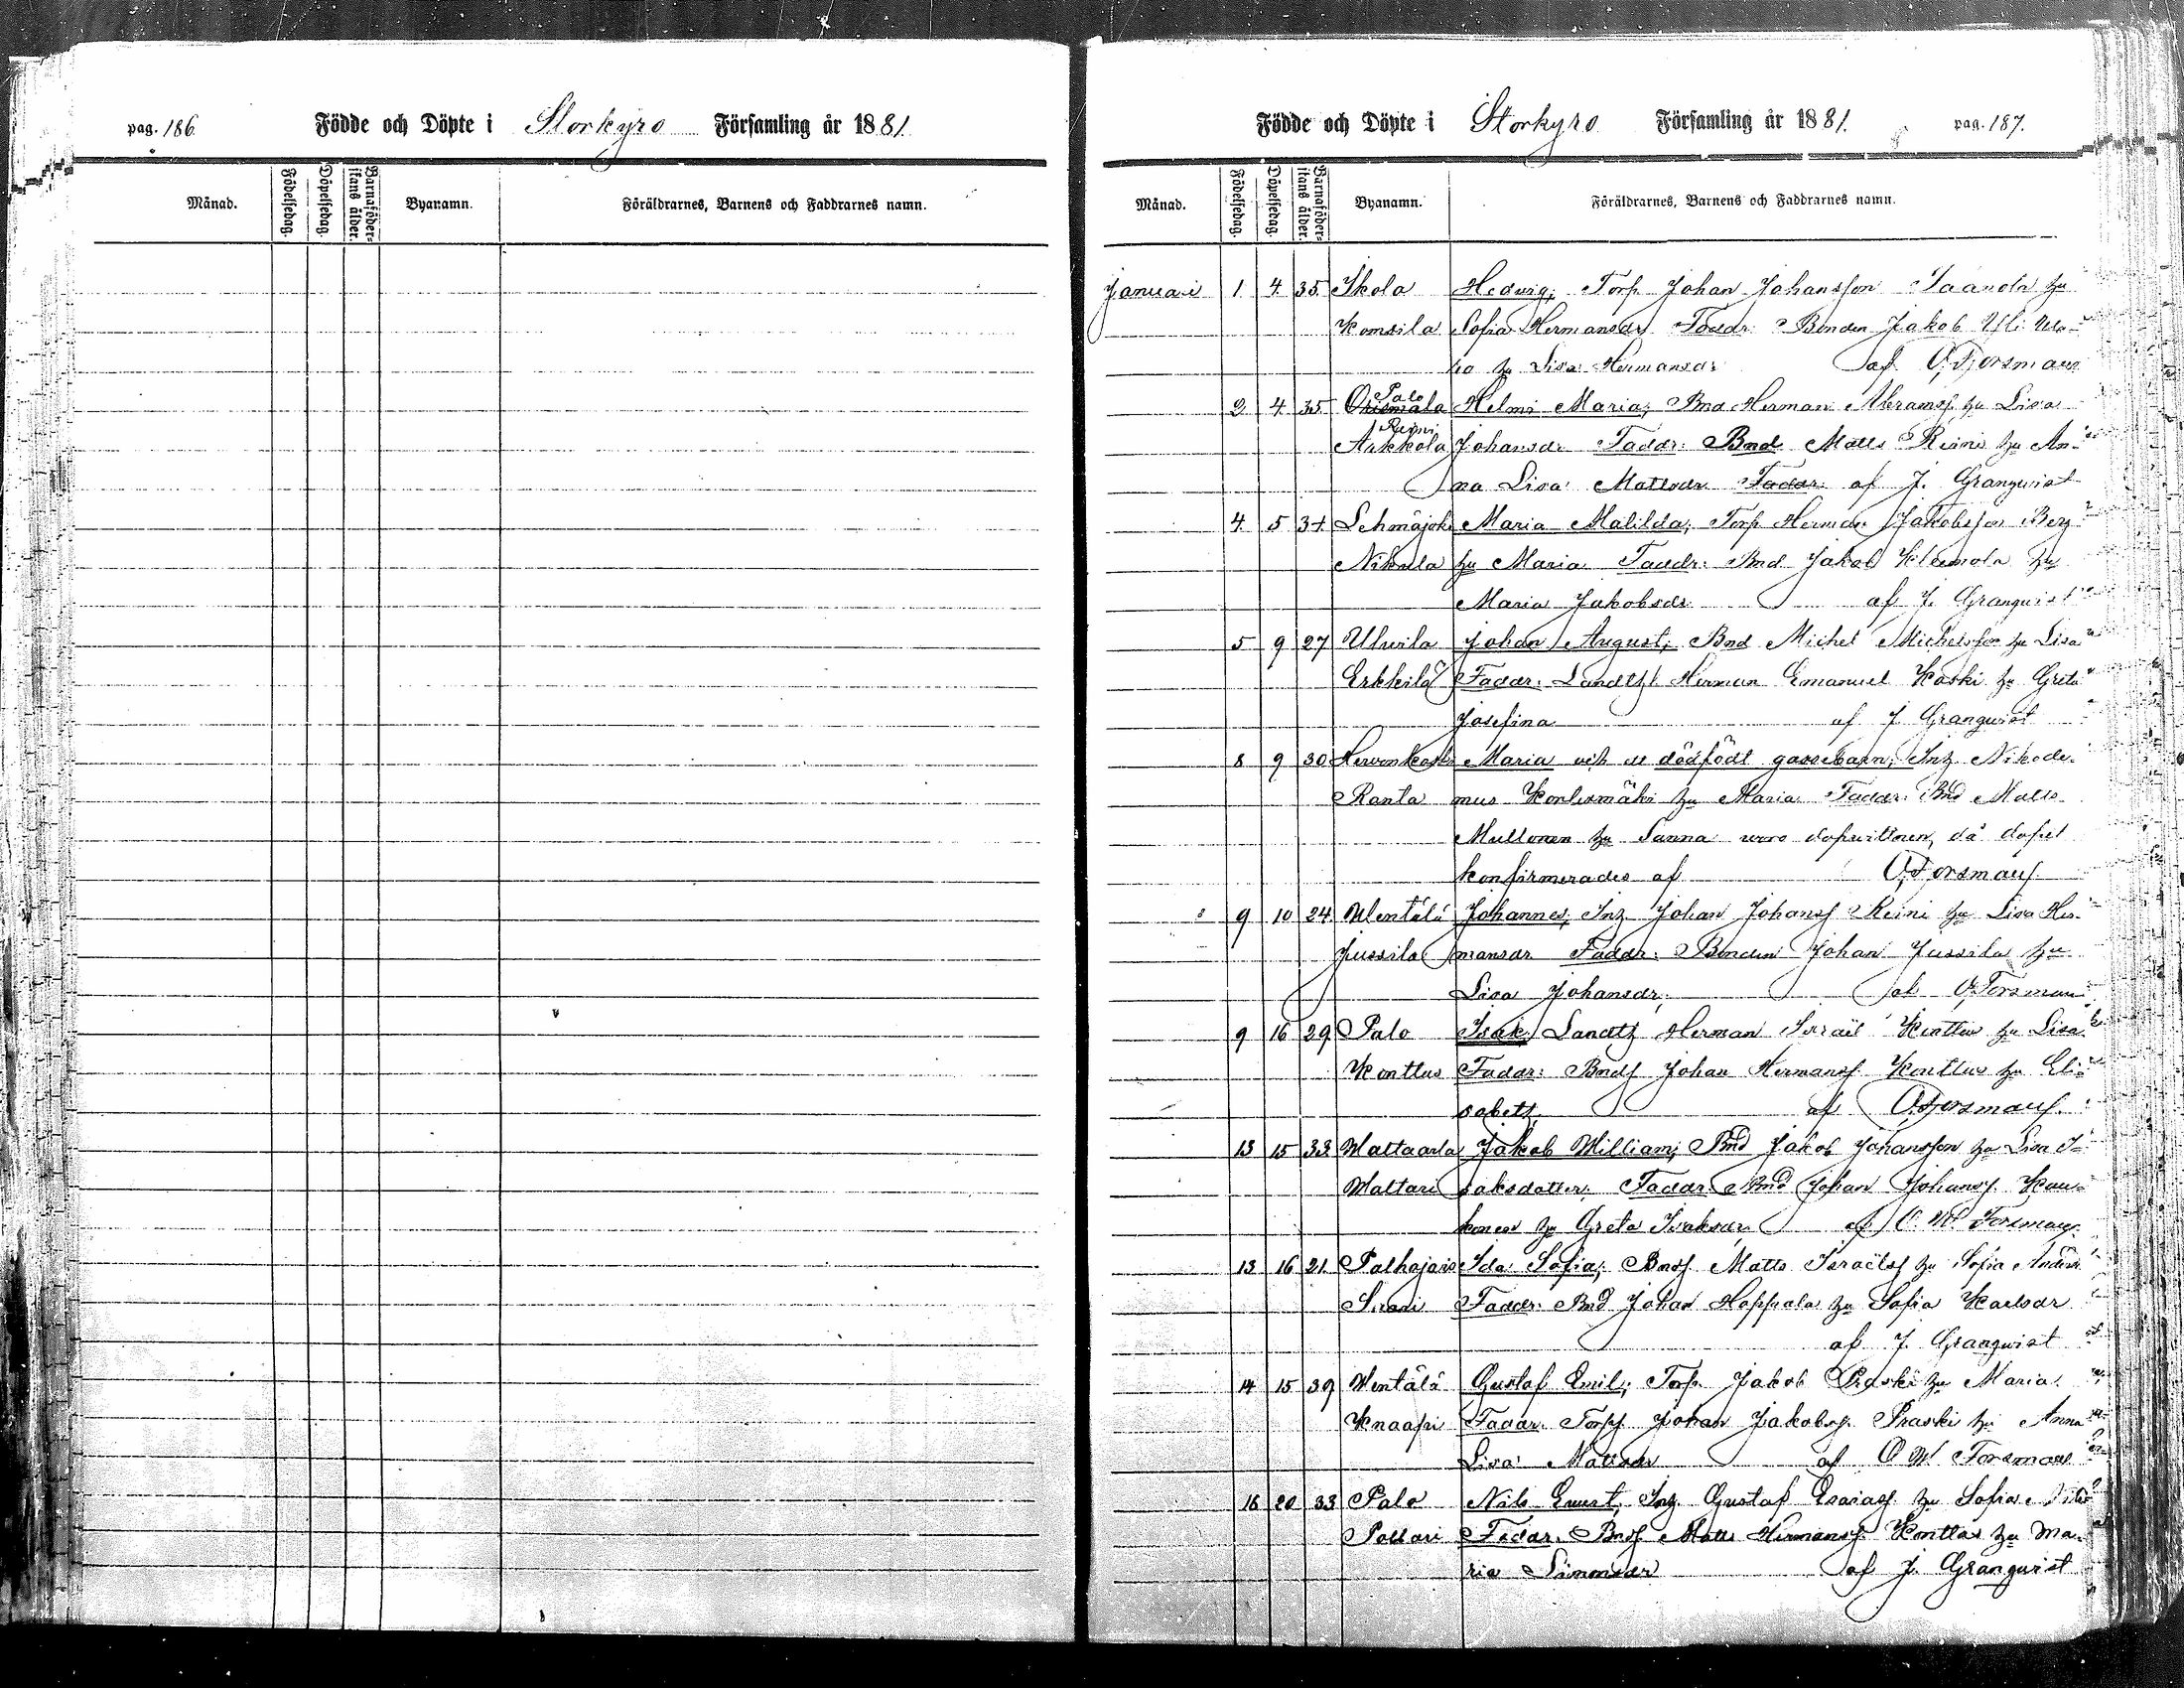 pag. 186
Födde och Döpte i Storkyro Församling år 1881.
Månad. Födelsedag. Döpelsedag. Barnaföderskans ålder. Byanamn. Föräldrarnes, Barnens och Faddrarnes namn.
Födde och Döpte i Storkyro Församling år 1881. pag. 187.
Månad. Födelsedag. Döpelsedag. Barnaföderskans ålder. Byanamn. Föräldrarnes, Barnens och Faddrarnes namn.
Januari 1 4 35 Ikola Hedvig; Torp. Johan Johansson Jaanola
Komsila Sofia Hermansdr Faddr: Bonden Jakob
Lisa Hermansdr af O Forsman
2 4 35 Palo Helmi Maria; Bnd Herman Abramss. Lisa
Reini
Johansdr Faddr: Bnd Matts Reini An-
na Lisa Mattsdr af J. Granqvist
4 5 Lehmäjoki Maria Matilda; Torp Herman Jakobsson
Nikula Maria Faddr: Bnd Jakob Kleemola
Maria Jakobsdr af J. Granqvist
5 9 27 Ulvila Johan August; Bnd Michel Michelsson Lisa
Erkkilä Faddr: Herman Emanuel Koski Greta
Josefina af J Granqvist
8 9 30 Hervenkoski Maria och dödfödt gossebarn; Inh Nikode-
Ranta mus Maria Faddr: Bnd Matts
Mullonen Sanna woro dopwittnen, då dopet
konfirmerades af O Forsman
9 10 24 Wentälä Johannes; Inh Johan Johanss Reini Lisa Her-
Jussila mansdr Faddr: Bonden Johan Jussila
Lisa Johansdr; af O Forsman
9 16 29 Palo Isak; Herman Israel Konttus Lisa
Konttus Faddr: Johan Hermanss Konttus Eli-
sabeth af O Forsman
13 15 33 Waltaarla Jakob William; Bnd Jakob Johansson Lisa I-
Waltari saksdotter. Faddr: Bnd Johan Johanss.
Greta Isaksdr af O. W. Forsman
13 16 21 Palhojais Ida Sofia; Matts Israelss Sofia
Faddr: Bnd Johan Hoppala Sofia Karlsdr
af J. Granqvist
14 15 39 Wentälä Gustaf Emil; Torp. Jakob Praski Maria
Knaapi Faddr. Johan Jakobss. Praski Anna
Lisa Mattsdr af O W Forsman
16 20 33 Palo Nils Ernst; Inh Gustaf Esaiass Sofia
Pollari Faddr. Matts Hermanss Konttas Ma-
ria Simonsdr af J. Granqvist